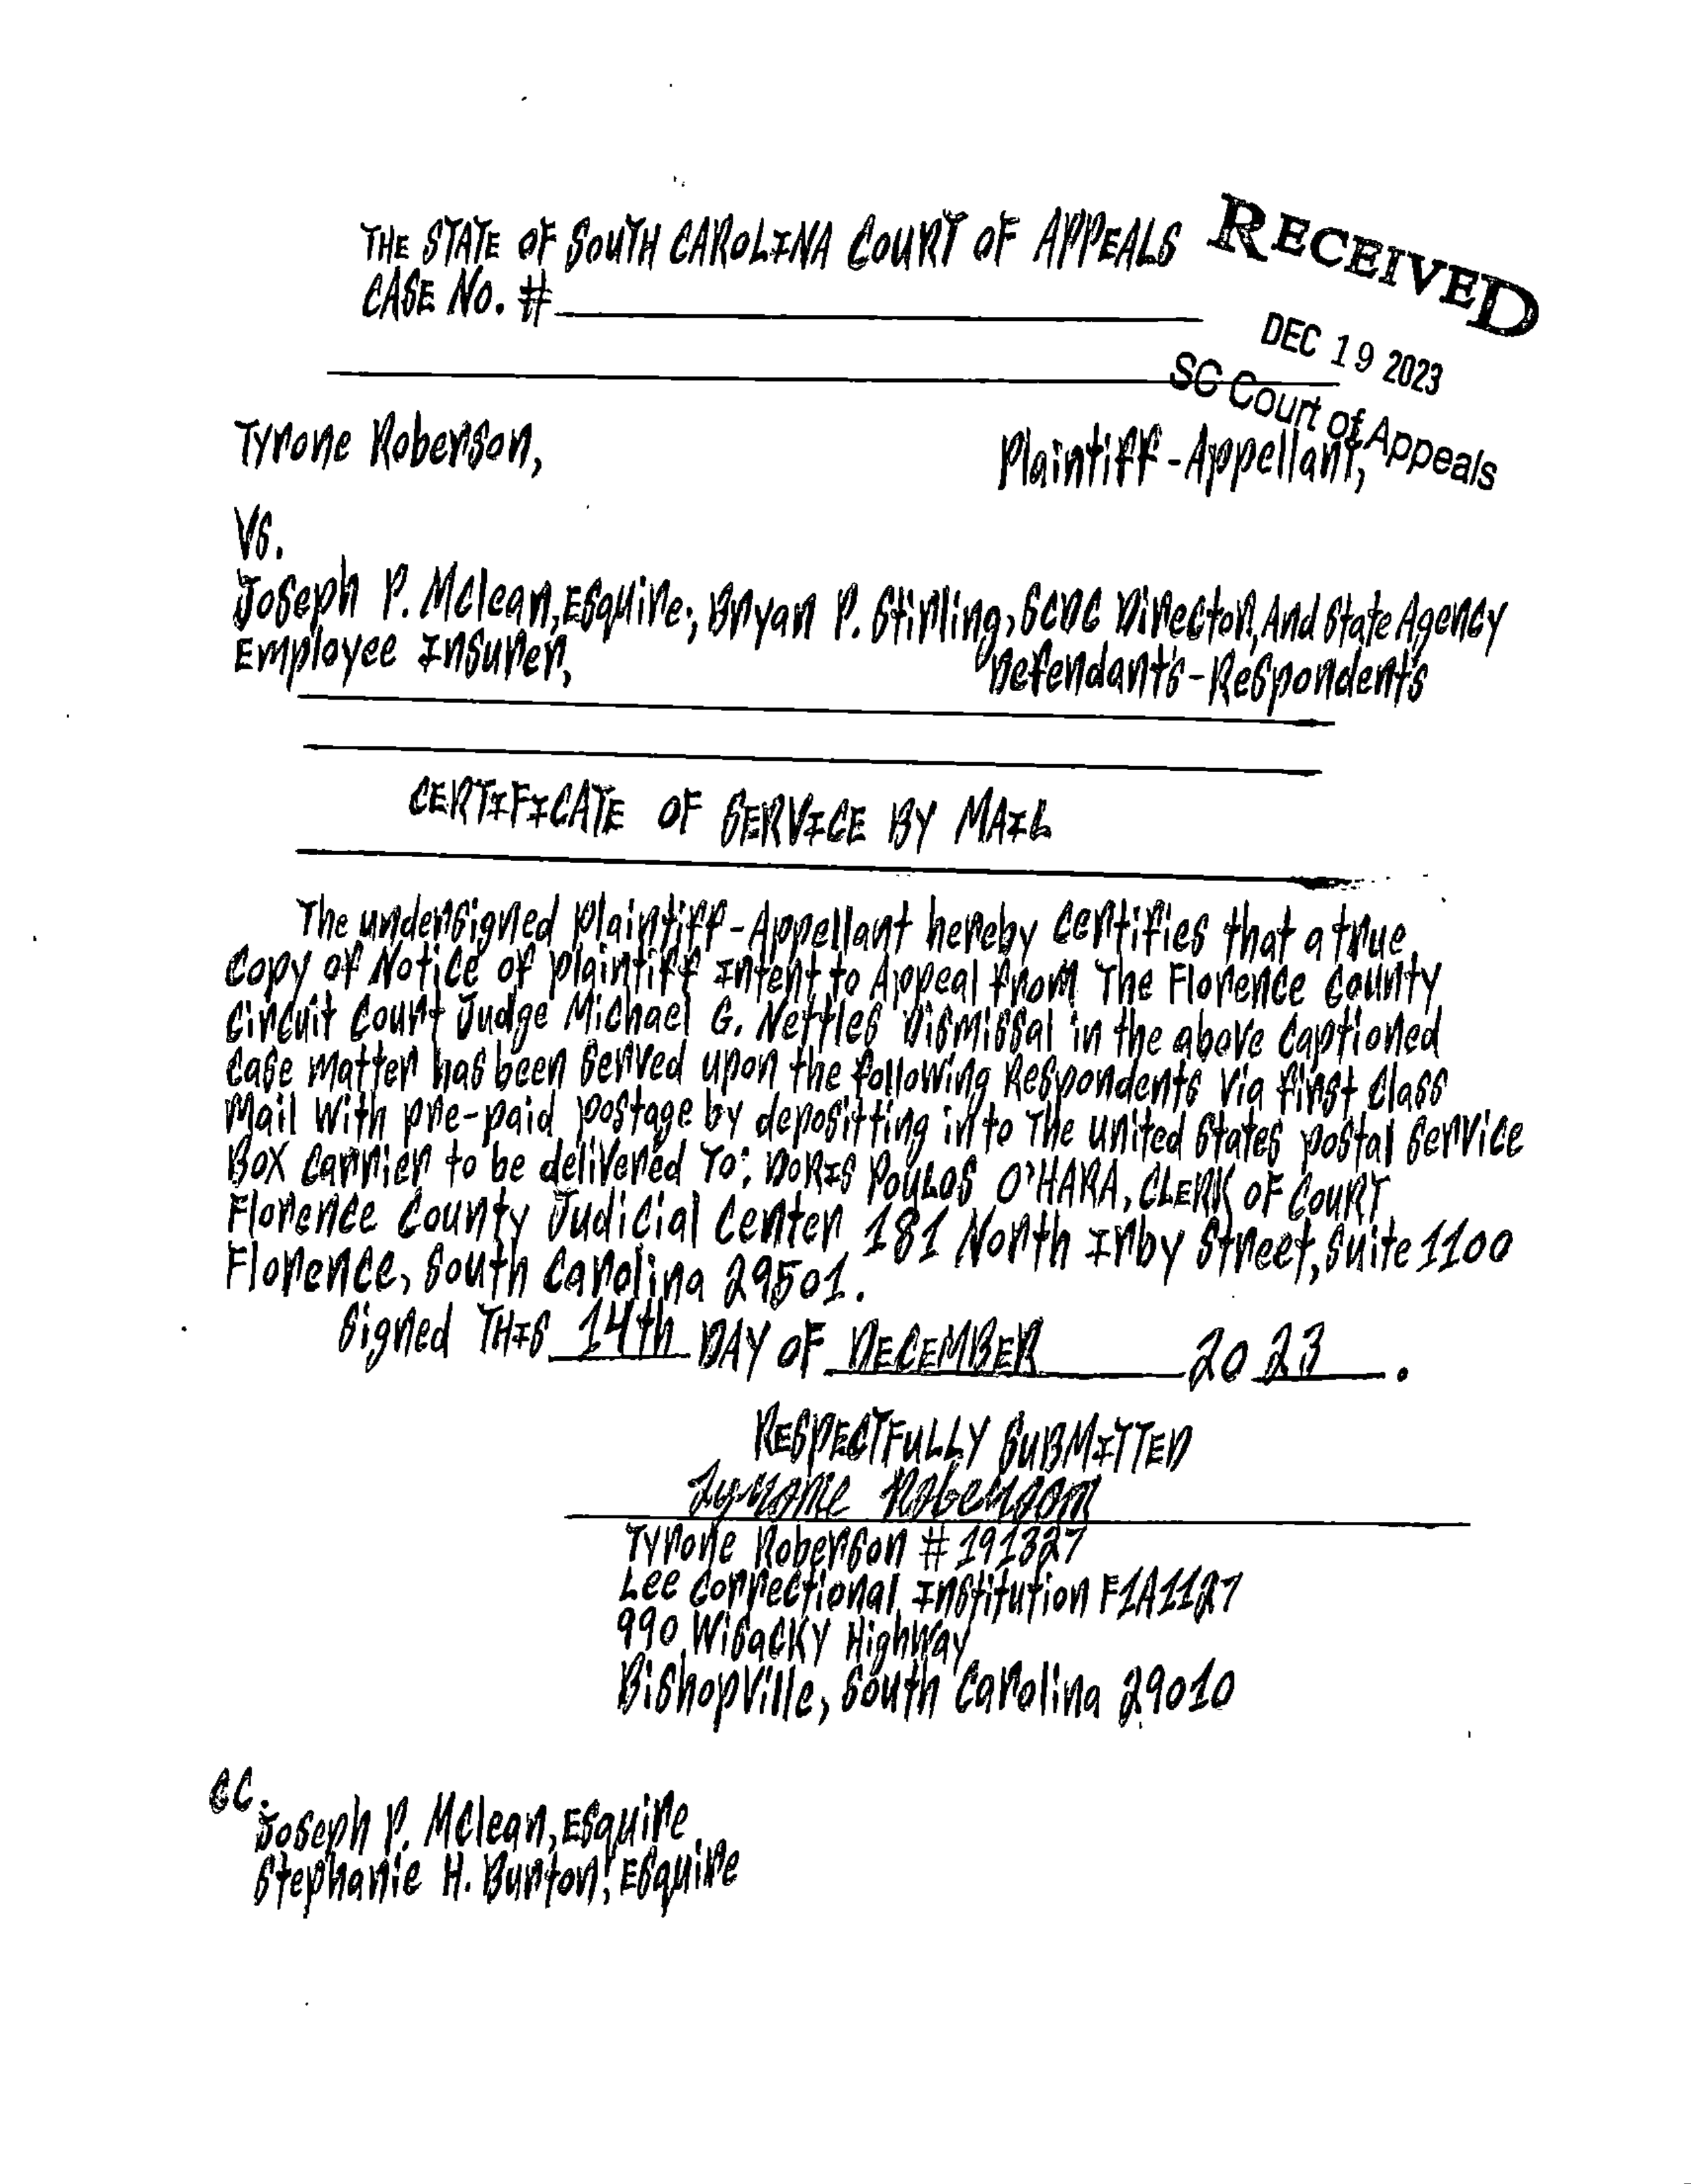 THE STATE OF SOUTH CAROLINA COURT OF APPEALS
RECEIVED
CASE No. #
DEC 19 2023
SC Court of Appeals
Tyrone Roberson,
Plaintiff-Appellant,
VS.
Joseph P. Mclean, Esquire; Bryan P. Stirling, SCDC Director, And State Agency
Employee Insurer,
Defendant's-Respondent's
CERTIFICATE OF SERVICE BY MAIL
The undersigned plaintiff-Appellant hereby certifies that a true
copy of Notice of plaintiff Intent to Appeal from The Florence County
Circuit Court Judge Michael G. Nettles' Dismissal in the above captioned
case matter has been served upon the following Respondents Via first Class
Mail with pre-paid postage by depositting into The united States postal Service
Box carrier to be delivered To: DORIS POULOS O'HARA, CLERK OF COURT
Florence County Judicial Center 181 North Irby Street, Suite 1100
Florence, South Carolina 29501.
Signed THIS 14th DAY OF DECEMBER 2023.
RESPECTFULLY SUBMITTED
Tyrone Roberson
Tyrone Roberson # 191327
Lee Correctional Institution F1A1127
990 Wisacky Highway
Bishopville, South Carolina 29010
CC.
Joseph P. Mclean, Esquire
Stephanie H. Burton, Esquire